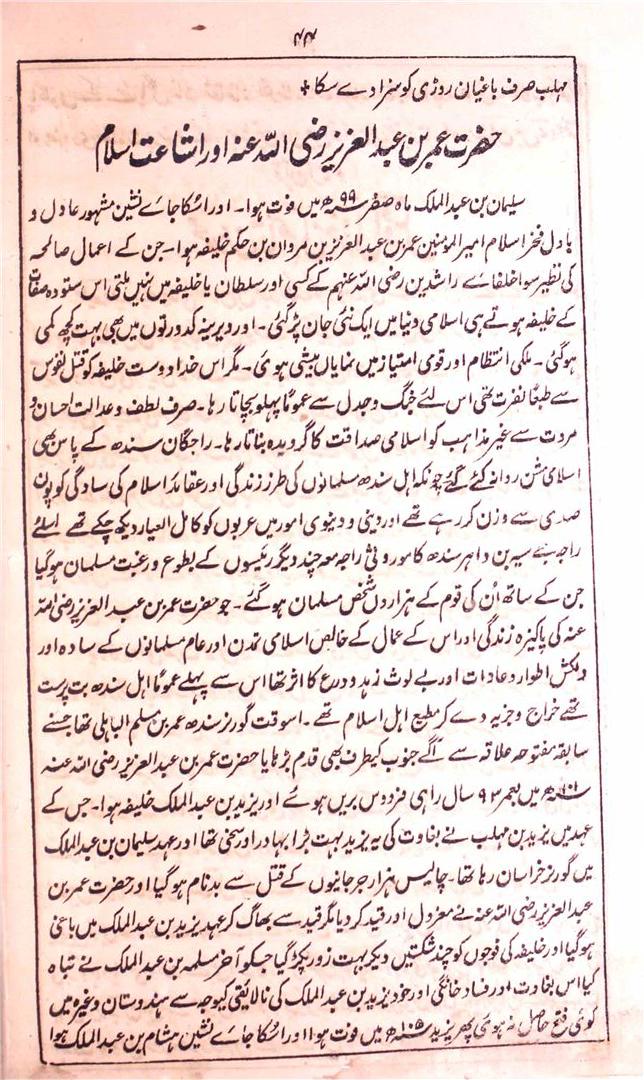 ۴۴
مہلب صرف باغیان روڑی کو سزا دے سکا *
حضرت عمر بن عبدالعزیز رضی اللہ عنہ اور اشاعت اسلام
سلیمان بن عبدالملک ماہ صفر ۹۹ھ میں فوت ہوا۔ اور اسکا جائے نشین مشہور عادل و
باذل فخر اسلام امیر المومنین عمر بن عبدالعزیز بن مروان بن حکم خلیفہ ہوا۔ جن کے اعمال صالحہ
کی نظیر سوا خلفائے راشدین رضی اللہ عنہم کے کسی اور سلطان یا خلیفہ میں نہیں ملتی اس ستودہ صفات
کے خلیفہ ہوتے ہی اسلامی دنیا میں ایک نئی جان پڑ گئی۔ اور دیرینہ کدورتوں میں بھی بہت کچھ کمی
ہو گئی۔ ملکی انتظام اور قومی امتیاز میں نمایاں بیشی ہوئی۔ مگر اس خدا دوست خلیفہ کو قتل نفوس
سے طبعاً نفرت تھی اس لئے جنگ و جدل سے عموماً پہلو بچاتا رہا۔ صرف لطف و عدالت احسان و
مروت سے غیر مذاہب کو اسلامی صداقت کا گرویدہ بناتا رہا۔ راجگان سندھ کے پاس بھی
اسلامی مشن روانہ کئے گئے چونکہ اہل سندھ مسلمانوں کی طرز زندگی اور عقائد اسلام کی سادگی کو پون
صدی سے وزن کر رہے تھے اور دینی و دنیوی امور میں عربوں کو کامل العیار دیکھ چکے تھے اسلئے
راجہ جے سیہ بن داہر سندھ کا موروثی راجہ معہ چند دیگر رئیسوں کے بطوع و رغبت مسلمان ہو گیا
جن کے ساتھ اُن کی قوم کے ہزاروں شخص مسلمان ہو گئے۔ جو حضرت عمر بن عبدالعزیز رضی اللہ
عنہ کی پاکیزہ زندگی اور اس کے عمال کے خالص اسلامی تمدن اور عام مسلمانوں کے سادہ اور
دلکش اطوار و عادات اور بے لوث زہد و درع کا اثر تھا اس سے پہلے عموماً اہل سندھ بت پرست
تھے خراج و جزیہ دے کر مطیع اہل اسلام تھے۔ اسوقت گورنر سندھ عمر بن مسلم الباہلی تھا جسنے
سابقہ مفتوحہ علاقہ سے آگے جنوب کیطرف بھی قدم بڑہایا حضرت عمر بن عبدالعزیز رضی اللہ عنہ
۱۰۱ھ میں بعمر ۹۳ سال راہی فردوس بریں ہوئے اور یزید بن عبدالملک خلیفہ ہوا۔ جس کے
عہد میں یزید بن مہلب نے بغاوت کی یہ یزید بہت بڑا بہادر اور سخی تھا اور عہد سلیمان بن عبدالملک
میں گورنر خراسان رہا تھا۔ چالیس ہزار جرجانیوں کے قتل سے بدنام ہو گیا اور حضرت عمر بن
عبدالعزیز رضی اللہ عنہ نے معزول اور قید کر دیا مگر قید سے بھاگ کر عہد یزید بن عبدالملک میں باغی
ہو گیا اور خلیفہ کی فوجوں کو چند شکستیں دیکر بہت زور پکڑ گیا جسکو آخر مسلمہ بن عبدالملک نے تباہ
کیا اس بغاوت اور فساد خانگی اور خود یزید بن عبدالملک کی نالایقی کیوجہ سے ہندوستان وغیرہ میں
کوئی فتح حاصل نہ ہوئی پھر یزید ۱۰۵ھ میں فوت ہوا اور اسکا جائے نشین ہشام بن عبدالملک ہوا